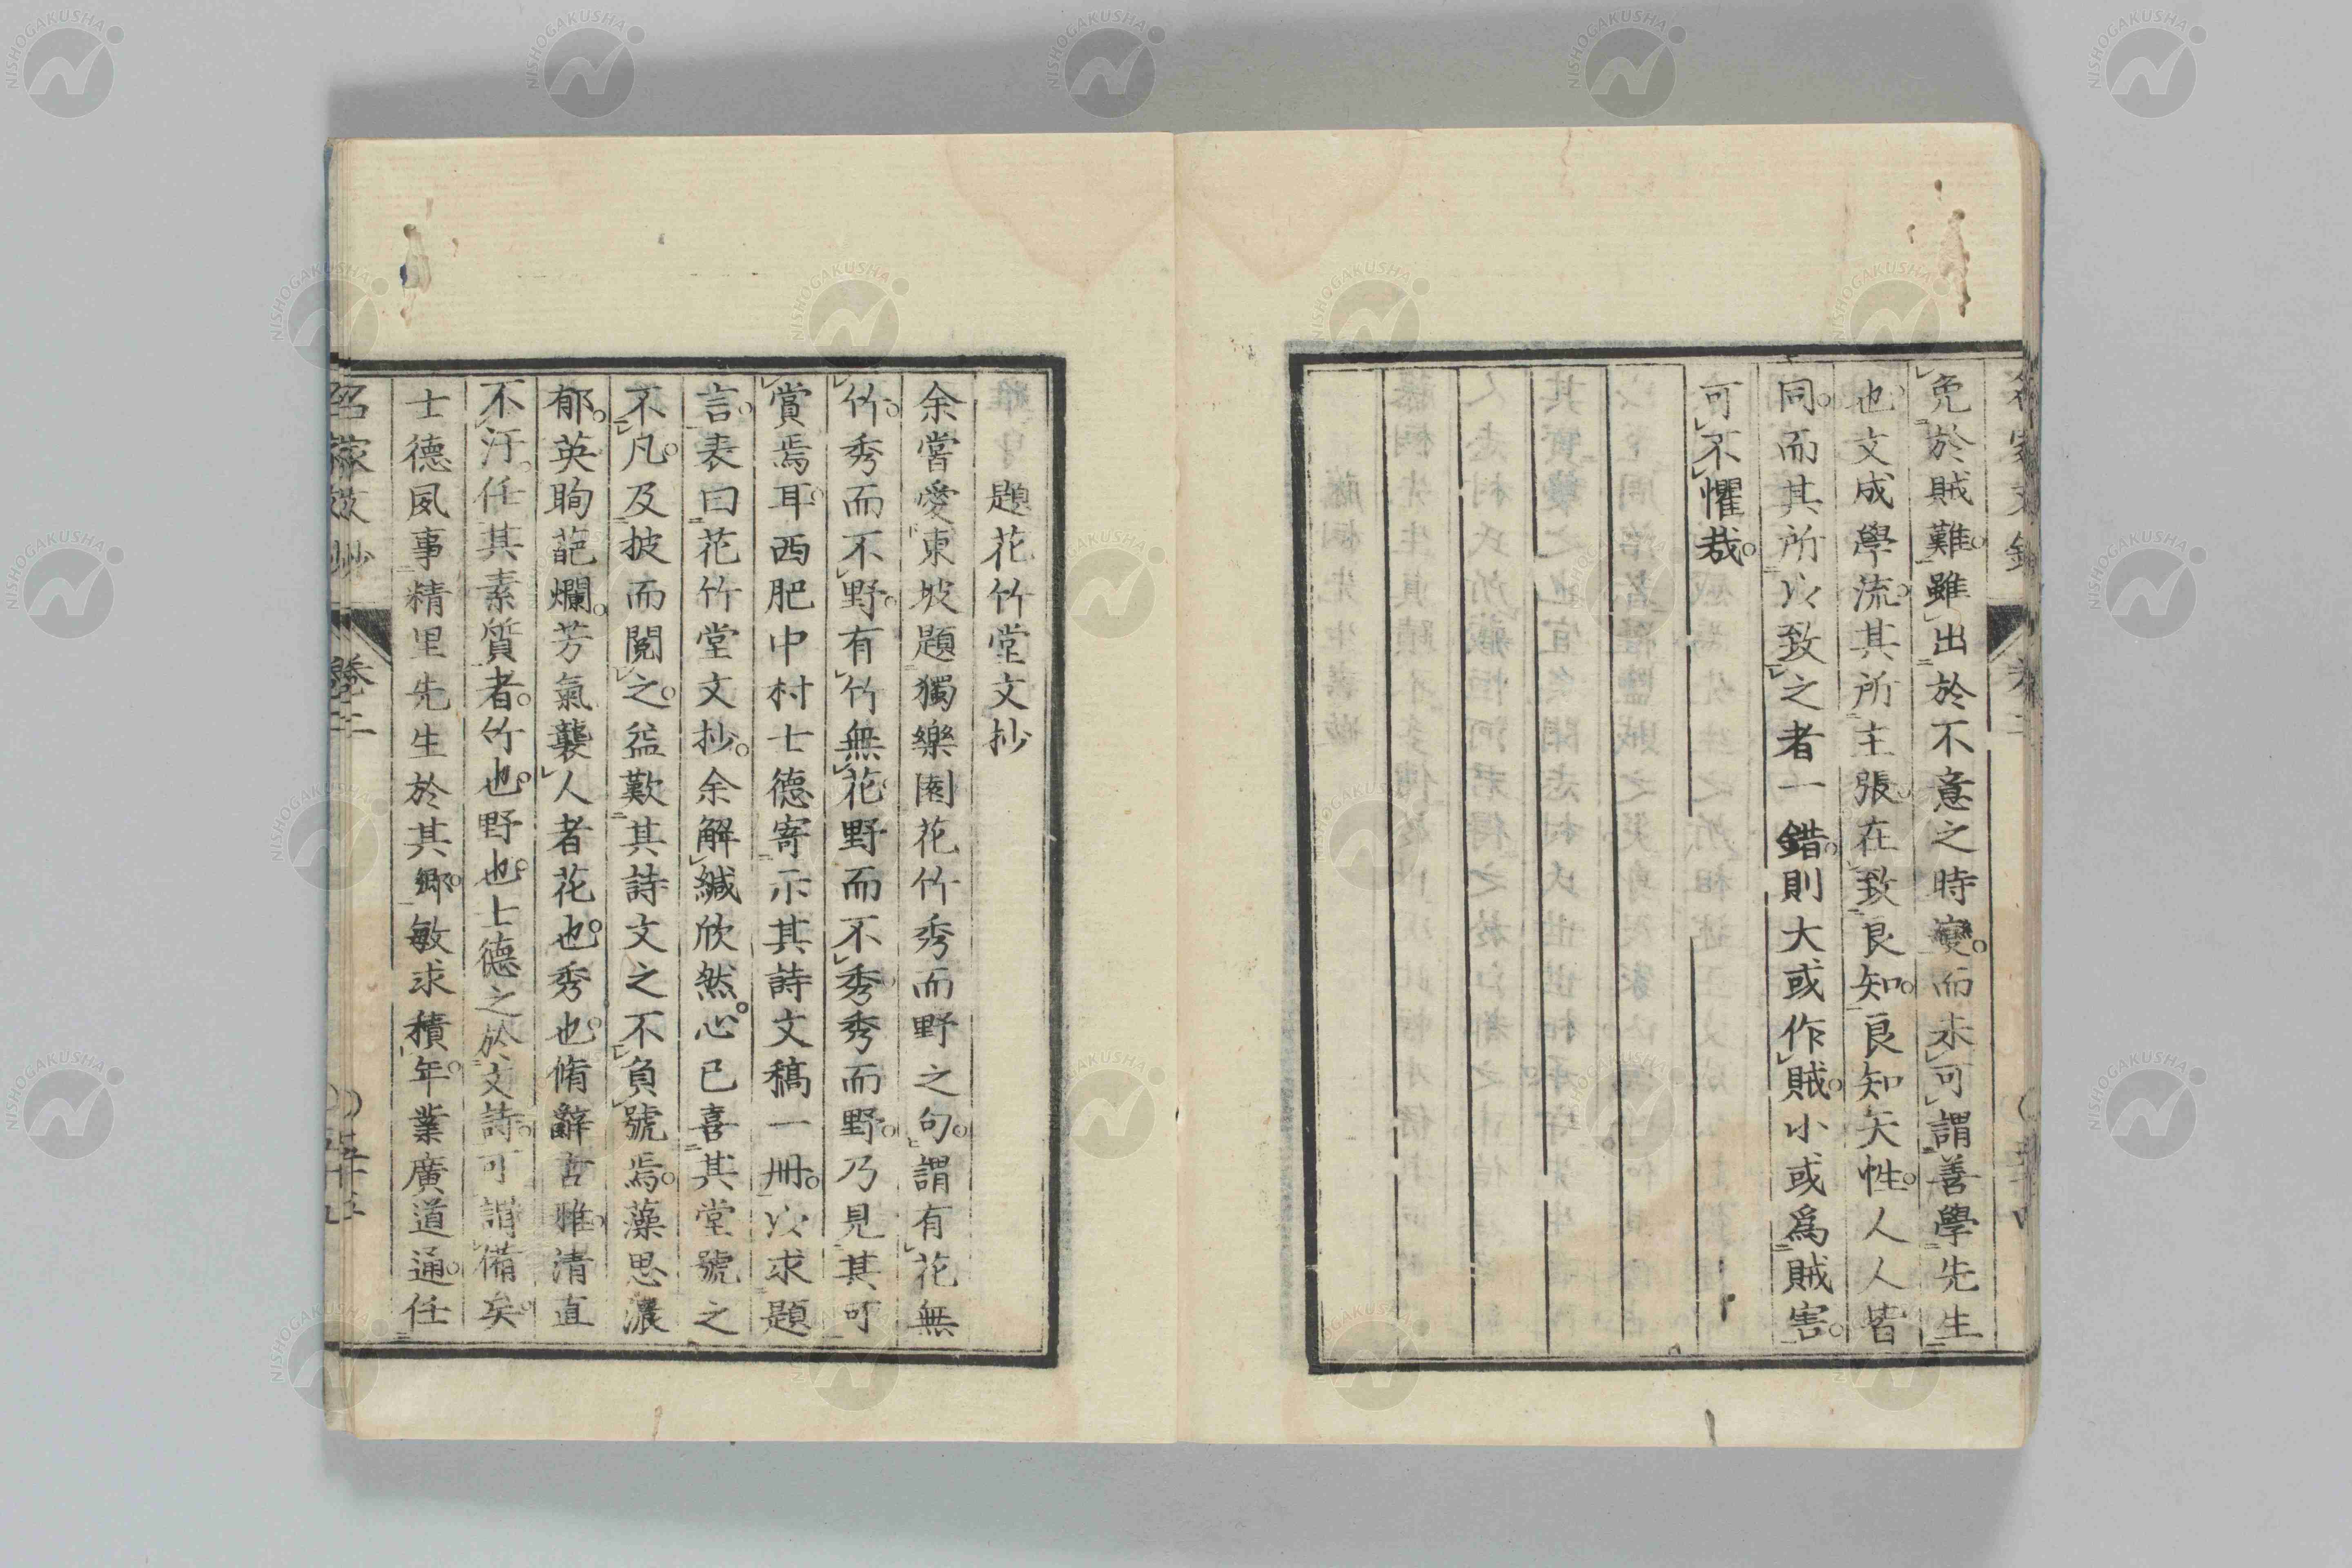 免於賊難。雖出於不意之時變。而未可謂善學先生
也。文成學流。其所主張。在致良知。良知矢性。人人皆
同。而其所以致之者一錯。則大或作賊。小或爲賊害。
可不懼哉。
題花竹堂文抄
余嘗愛東坡題獨樂園花竹秀而野之句。謂有花無
竹。秀而不野。有竹無花。野而不秀。秀而野。乃見其可
賞焉耳。西肥中村士德寄示其詩文稿一冊。以求題
言。表曰花竹堂文抄。余解緘欣然。心已喜其堂號之
不凡。及披而閲之。益歎其詩文之不負號焉。藻思濃
郁。英眴葩爛。芳氣襲人者花也。秀也。脩辭古雅。清直
不汙。任其素質者。竹也。野也。士德之於文詩。可謂備矣。
士德夙事精里先生於其鄉。敏求積年。業廣道通。任
卷二
NISHOGAKUSHA